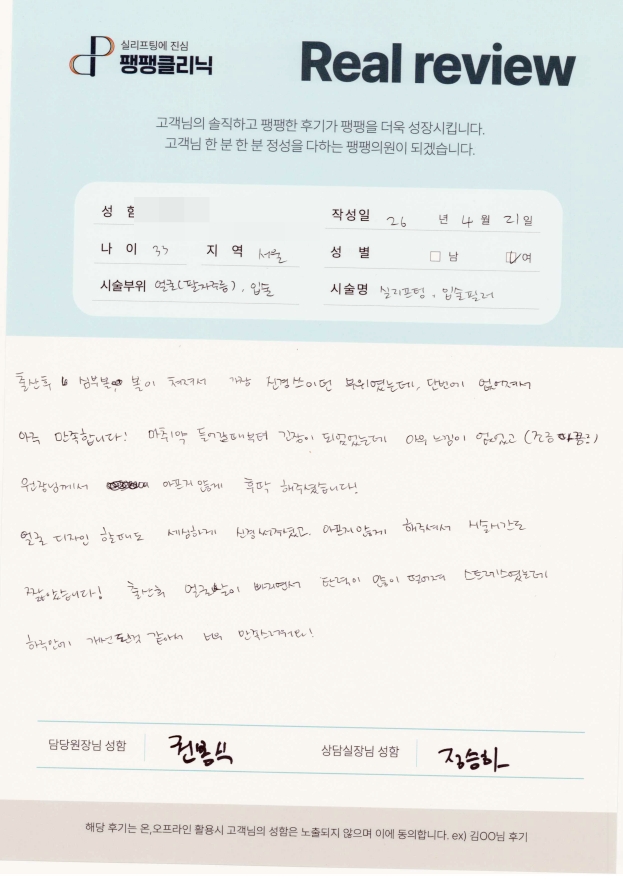 실리프팅에 진심
팽팽클리닉
Real review
고객님의 솔직하고 팽팽한 후기가 팽팽을 더욱 성장시킵니다.
고객님 한 분 한 분 정성을 다하는 팽팽의원이 되겠습니다.
성 함
작성일 26 년 4 월 21 일
나 이 33 지 역 서울
성 별 남 여
시술부위 얼굴(팔자주름), 입술
시술명 실리프팅, 입술필러
출산후 심부볼 볼이 쳐져서 가장 신경쓰이던 부위였는데, 단번에 없어져서
아주 만족합니다! 마취약 들어갈때부터 긴장이 되었었는데 아무 느낌이 없었고 (조금 따끔?)
원장님께서 아프지 않게 후딱 해주셨습니다!
얼굴 디자인 할때도 세심하게 신경써주셨고, 아프지않게 해주셔서 시술시간도
짧았습니다! 출산후 얼굴살이 빠지면서 탄력이 많이 떨어져 스트레스였는데
하루만에 개선된것 같아서 너무 만족스러워요!
담당원장님 성함 권봉식
상담실장님 성함 정승하
해당 후기는 온,오프라인 활용시 고객님의 성함은 노출되지 않으며 이에 동의합니다. ex) 김OO님 후기